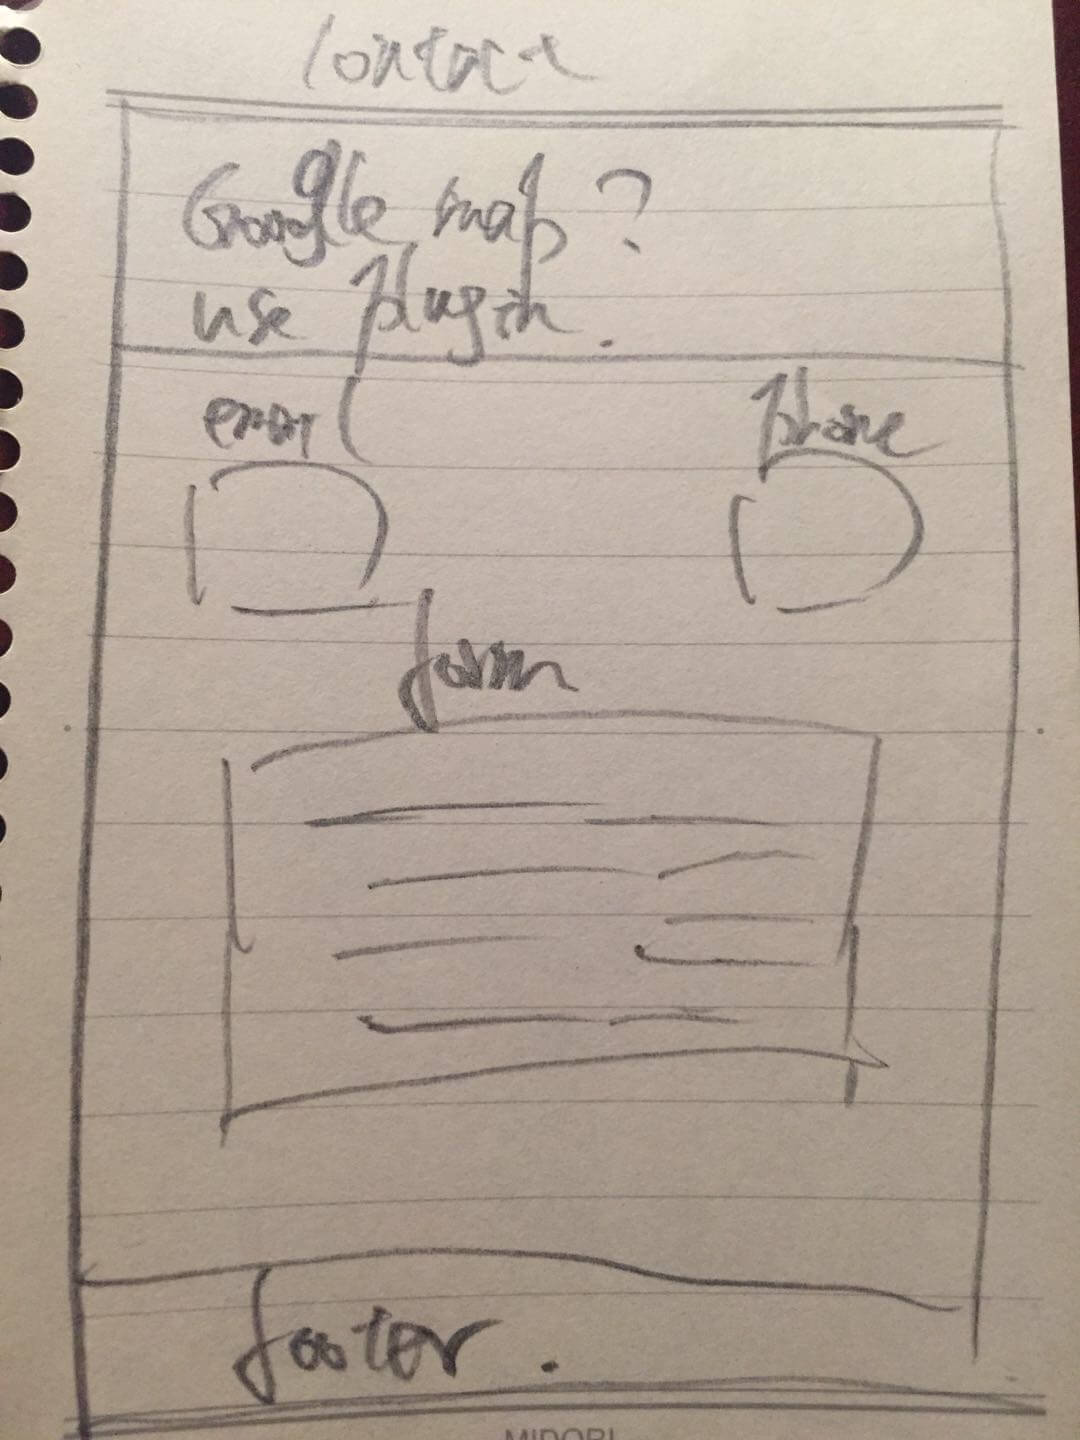 Contact
Google map?
use plugin.
email
phone
form
footer.
MIDORI